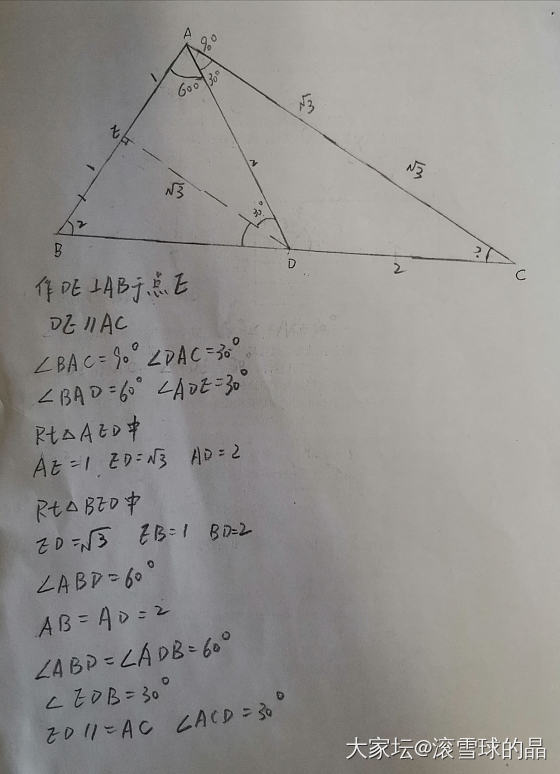 A
90°
60°
30°
1
√3
E
2
√3
1
√3
30°
2
?
B
D
2
C
作DE⊥AB于点E
DE∥AC
∠BAC=90° ∠DAC=30°
∠BAD=60° ∠ADE=30°
Rt△AED中
AE=1 ED=√3 AD=2
Rt△BED中
ED=√3 EB=1 BD=2
∠ABD=60°
AB=AD=2
∠ABD=∠ADB=60°
∠EDB=30°
ED∥=AC ∠ACD=30°
大家坛@滚雪球的晶